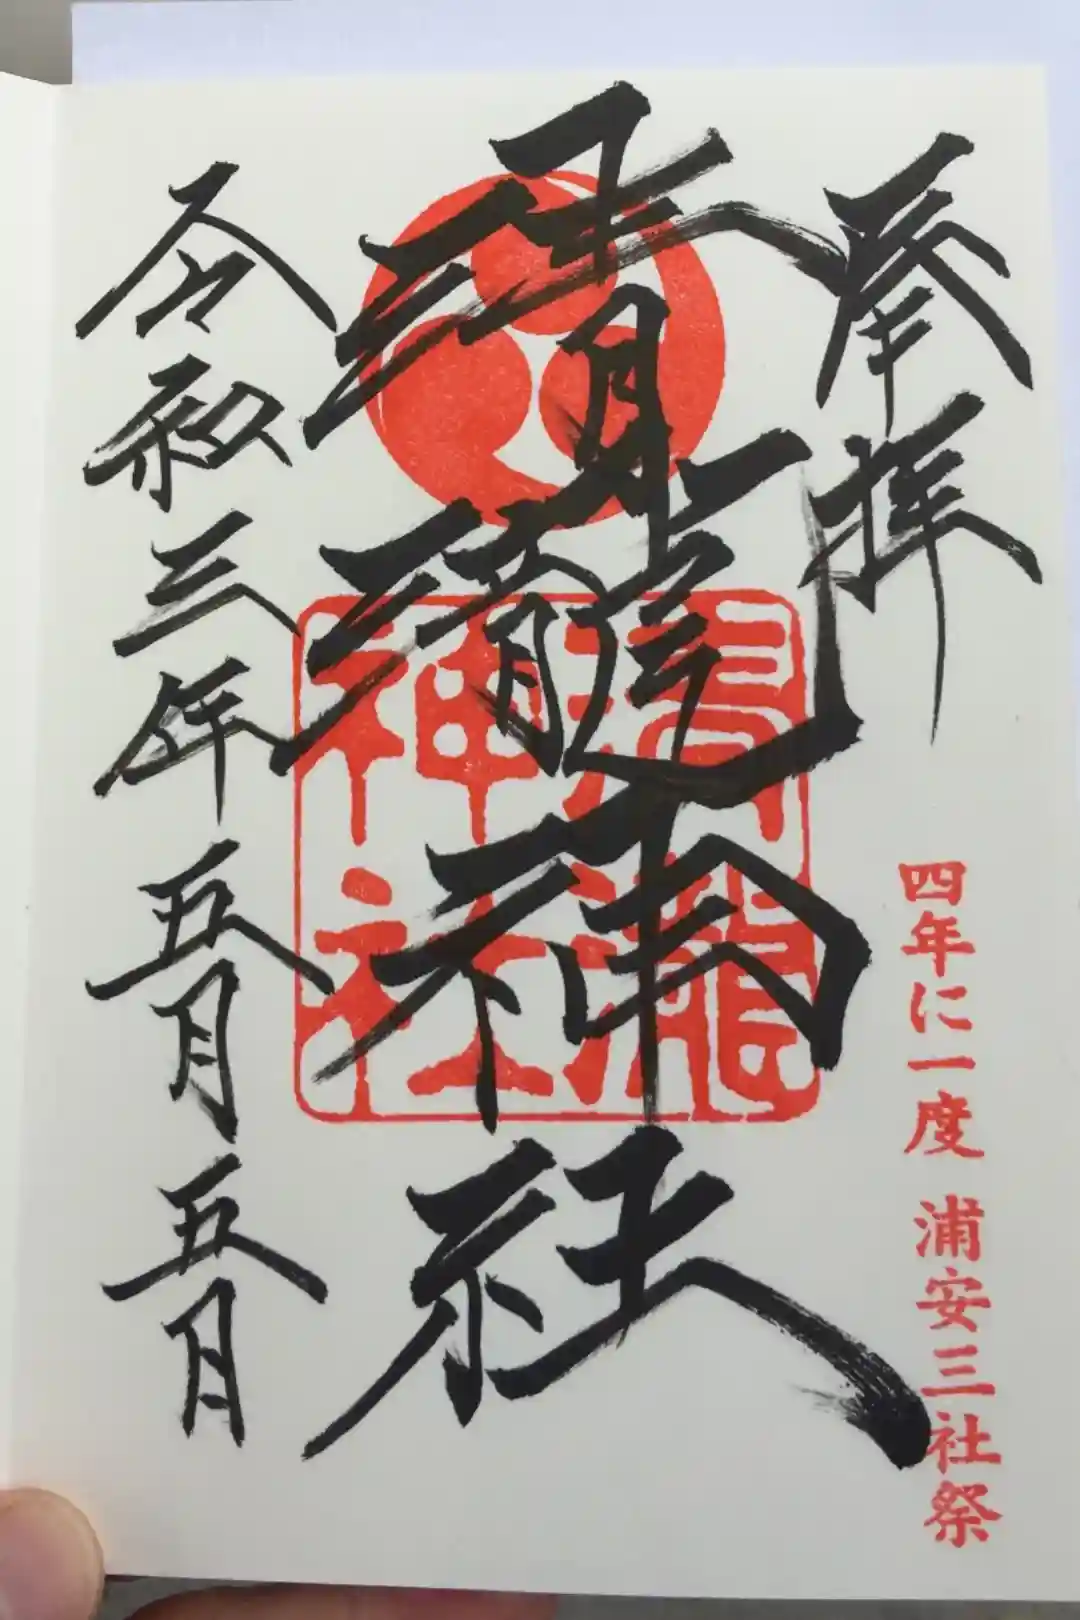 奉拝
四年に一度 浦安三社祭
清瀧神社
清瀧
神社
令和三年五月五月